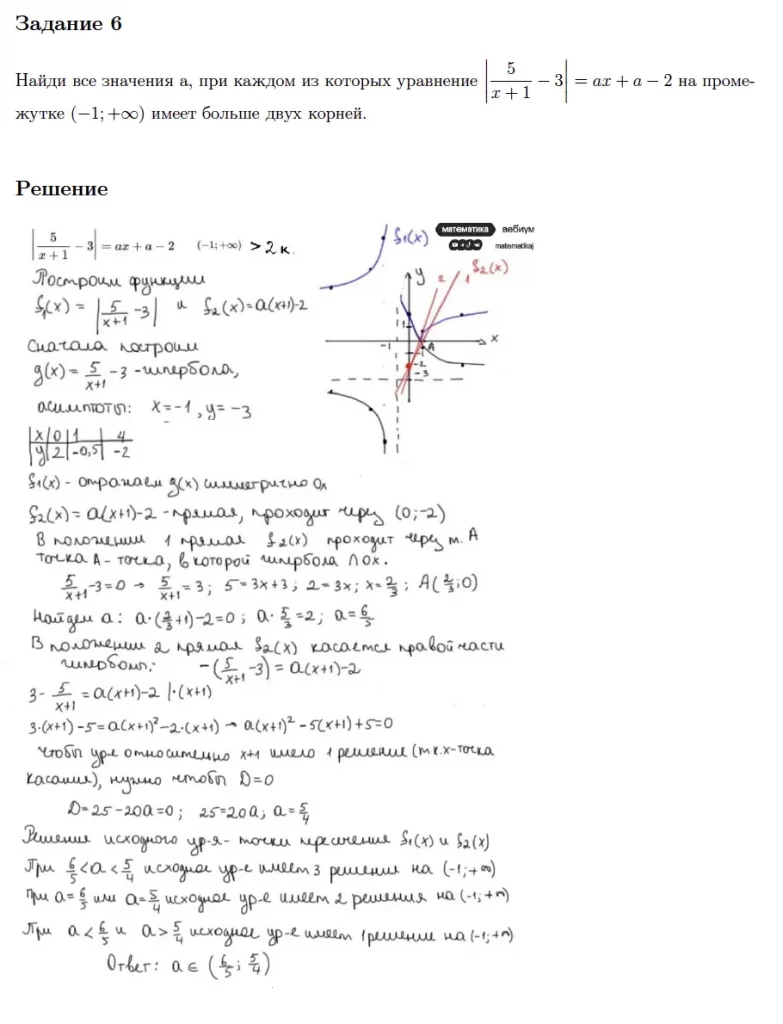 Задание 6
Найди все значения a, при каждом из которых уравнение |5/(x+1) − 3| = ax + a − 2 на проме-
жутке (−1; +∞) имеет больше двух корней.
Решение
математика вебиум
matematikaj
|5/(x+1) − 3| = ax + a − 2 (−1; +∞) > 2 к.
Построим функции
f₁(x) = |5/(x+1) − 3| и f₂(x) = a(x+1)−2
Сначала построим
g(x) = 5/(x+1) − 3 - гипербола,
асимптоты: x = −1, y = −3
x 0 1 4
y 2 −0,5 −2
f₁(x) y 2 1 f₂(x)
1 x
−1 A
−1
−2
−3
f₁(x) - отражаем g(x) симметрично Ox
f₂(x) = a(x+1)−2 - прямая, проходит через (0;−2)
В положении 1 прямая f₂(x) проходит через т. A
точка A - точка, в которой гипербола ∩ Ox.
5/(x+1) −3=0 → 5/(x+1) = 3; 5=3x+3; 2=3x; x=2/3; A(2/3; 0)
Найдем a: a·(2/3+1)−2=0; a·5/3=2; a=6/5
В положении 2 прямая f₂(x) касается правой части
гиперболы: −(5/(x+1) −3) = a(x+1)−2
3− 5/(x+1) = a(x+1)−2 |·(x+1)
3·(x+1)−5=a(x+1)²−2·(x+1) → a(x+1)²−5(x+1)+5=0
чтобы ур-е относительно x+1 имело 1 решение (т.к. x-точка
касания), нужно чтобы D=0
D=25−20a=0; 25=20a; a=5/4
Решения исходного ур-я - точки пересечения f₁(x) и f₂(x)
При 6/5<a<5/4 исходное ур-е имеет 3 решения на (−1;+∞)
При a=6/5 или a=5/4 исходное ур-е имеет 2 решения на (−1;+∞)
При a<6/5 и a>5/4 исходное ур-е имеет 1 решение на (−1;+∞)
Ответ: a∈(6/5; 5/4)